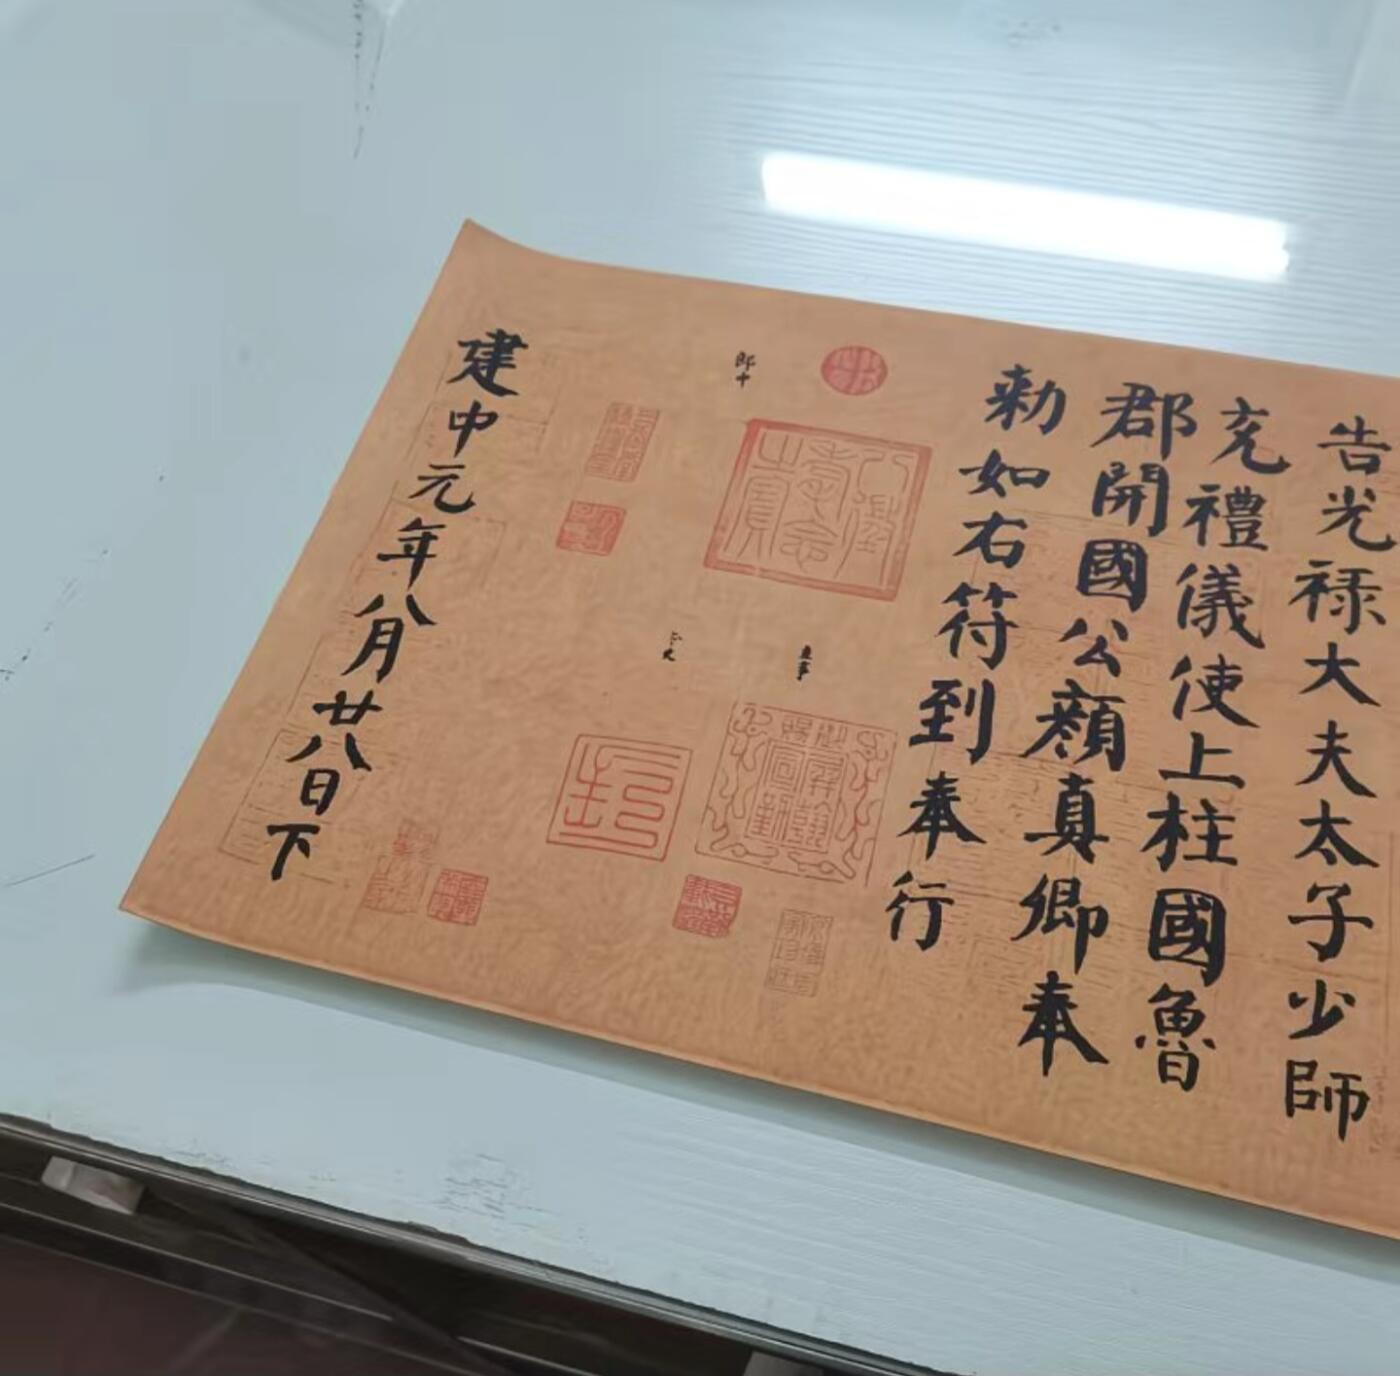 告光禄大夫太子少師
充禮儀使上柱國魯
郡開國公顔真卿奉
勅如右符到奉行
郎中
建中元年八月廿八日下